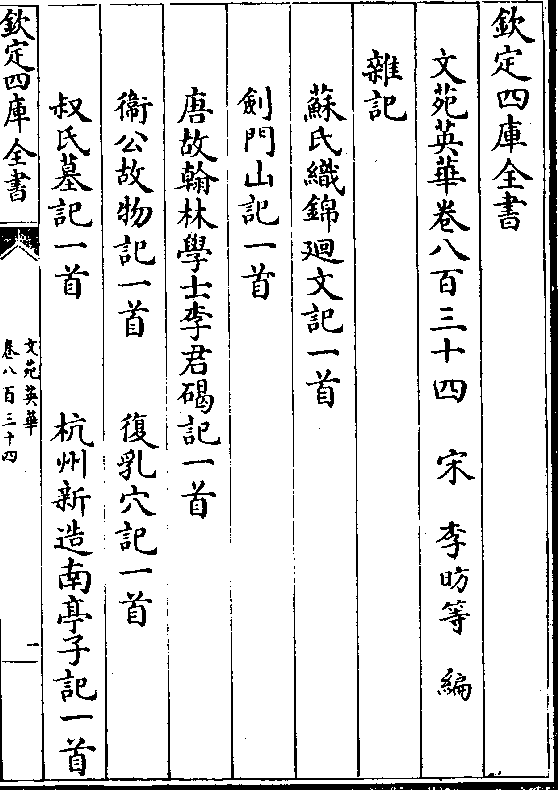 欽定四庫全書
文苑英華卷八百三十四　宋　李昉等　編
雜記
蘇氏織錦廻文記一首
劍門山記一首
唐故翰林學士李君碣記一首
衞公故物記一首　復乳穴記一首
叔氏墓記一首　杭州新造南亭子記一首
欽定四庫全書
文苑英華
卷八百三十四
一